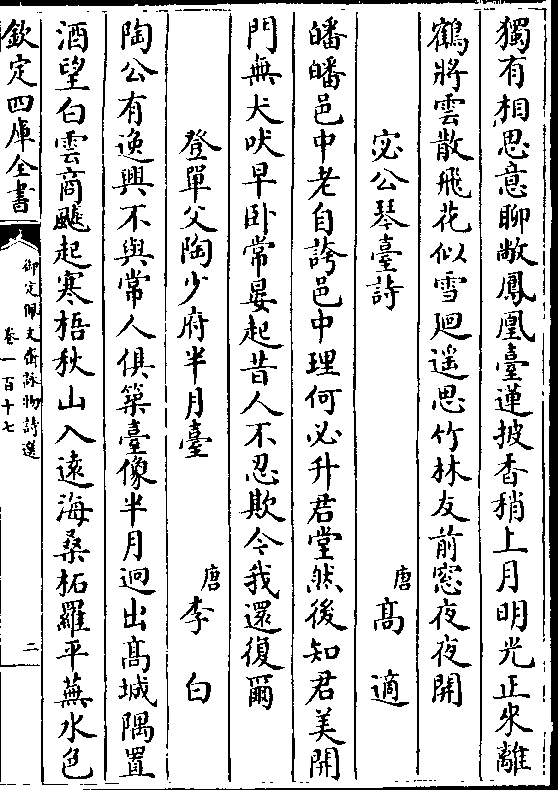 獨有相思意聊敞鳳凰臺蓮披香稍上月明光正來離
鶴將雲散飛花似雪廻遥思竹林友前窓夜夜開
宓公琴臺詩
唐
髙適
皤皤邑中老自誇邑中理何必升君堂然後知君美開
門無犬吠早卧常晏起昔人不忍欺今我還復爾
登單父陶少府半月臺
唐
李白
陶公有逸興不與常人俱築臺像半月迥出髙城隅置
酒望白雲商飈起寒梧秋山入遠海桑柘羅平蕪水色
欽定四庫全書
御定佩文齋詠物詩選
卷一百十七
二